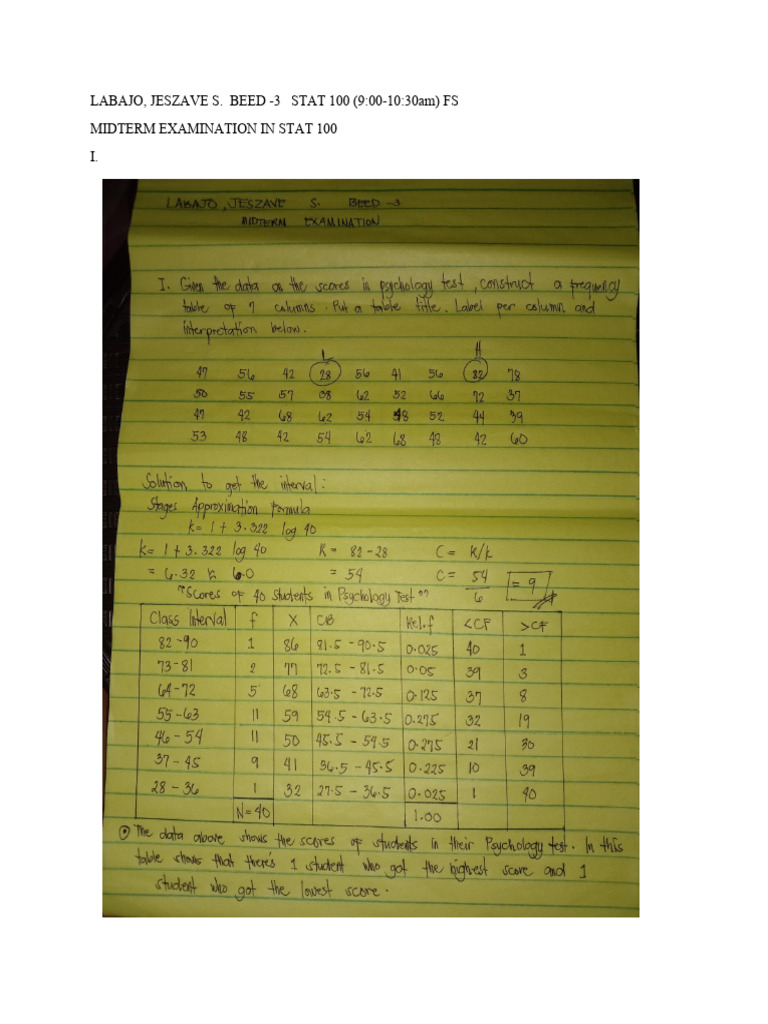 LABAJO, JESZAVE S. BEED -3 STAT 100 (9:00-10:30am) FS
MIDTERM EXAMINATION IN STAT 100
I.
LABAJO, JESZAVE S. BEED -3
MIDTERM EXAMINATION
I. Given the data on the scores in psychology test, construct a frequency
table of 7 columns. Put a table title. Label per column and
interpretation below.
L H
47 56 42 28 56 41 56 82 78
50 55 57 08 62 52 66 72 37
47 42 68 62 54 48 52 44 39
53 48 42 54 62 68 48 42 60
Solution to get the interval:
Stages Approximation Formula
k= 1 + 3.322 log 40
k= 1 + 3.322 log 40 R = 82 - 28 C = R/k
= 6.32 ≈ 6.0 = 54 C = 54/6 = 9
"Scores of 40 students in Psychology Test"
Class Interval f X CB Rel.f <CF >CF
82-90 1 86 81.5 - 90.5 0.025 40 1
73-81 2 77 72.5 - 81.5 0.05 39 3
64-72 5 68 63.5 - 72.5 0.125 37 8
55-63 11 59 54.5 - 63.5 0.275 32 19
46-54 11 50 45.5 - 54.5 0.275 21 30
37-45 9 41 36.5 - 45.5 0.225 10 39
28-36 1 32 27.5 - 36.5 0.025 1 40
N=40 1.00
The data above shows the scores of students in their Psychology test. In this
table shows that there's 1 student who got the highest score and 1
student who got the lowest score.